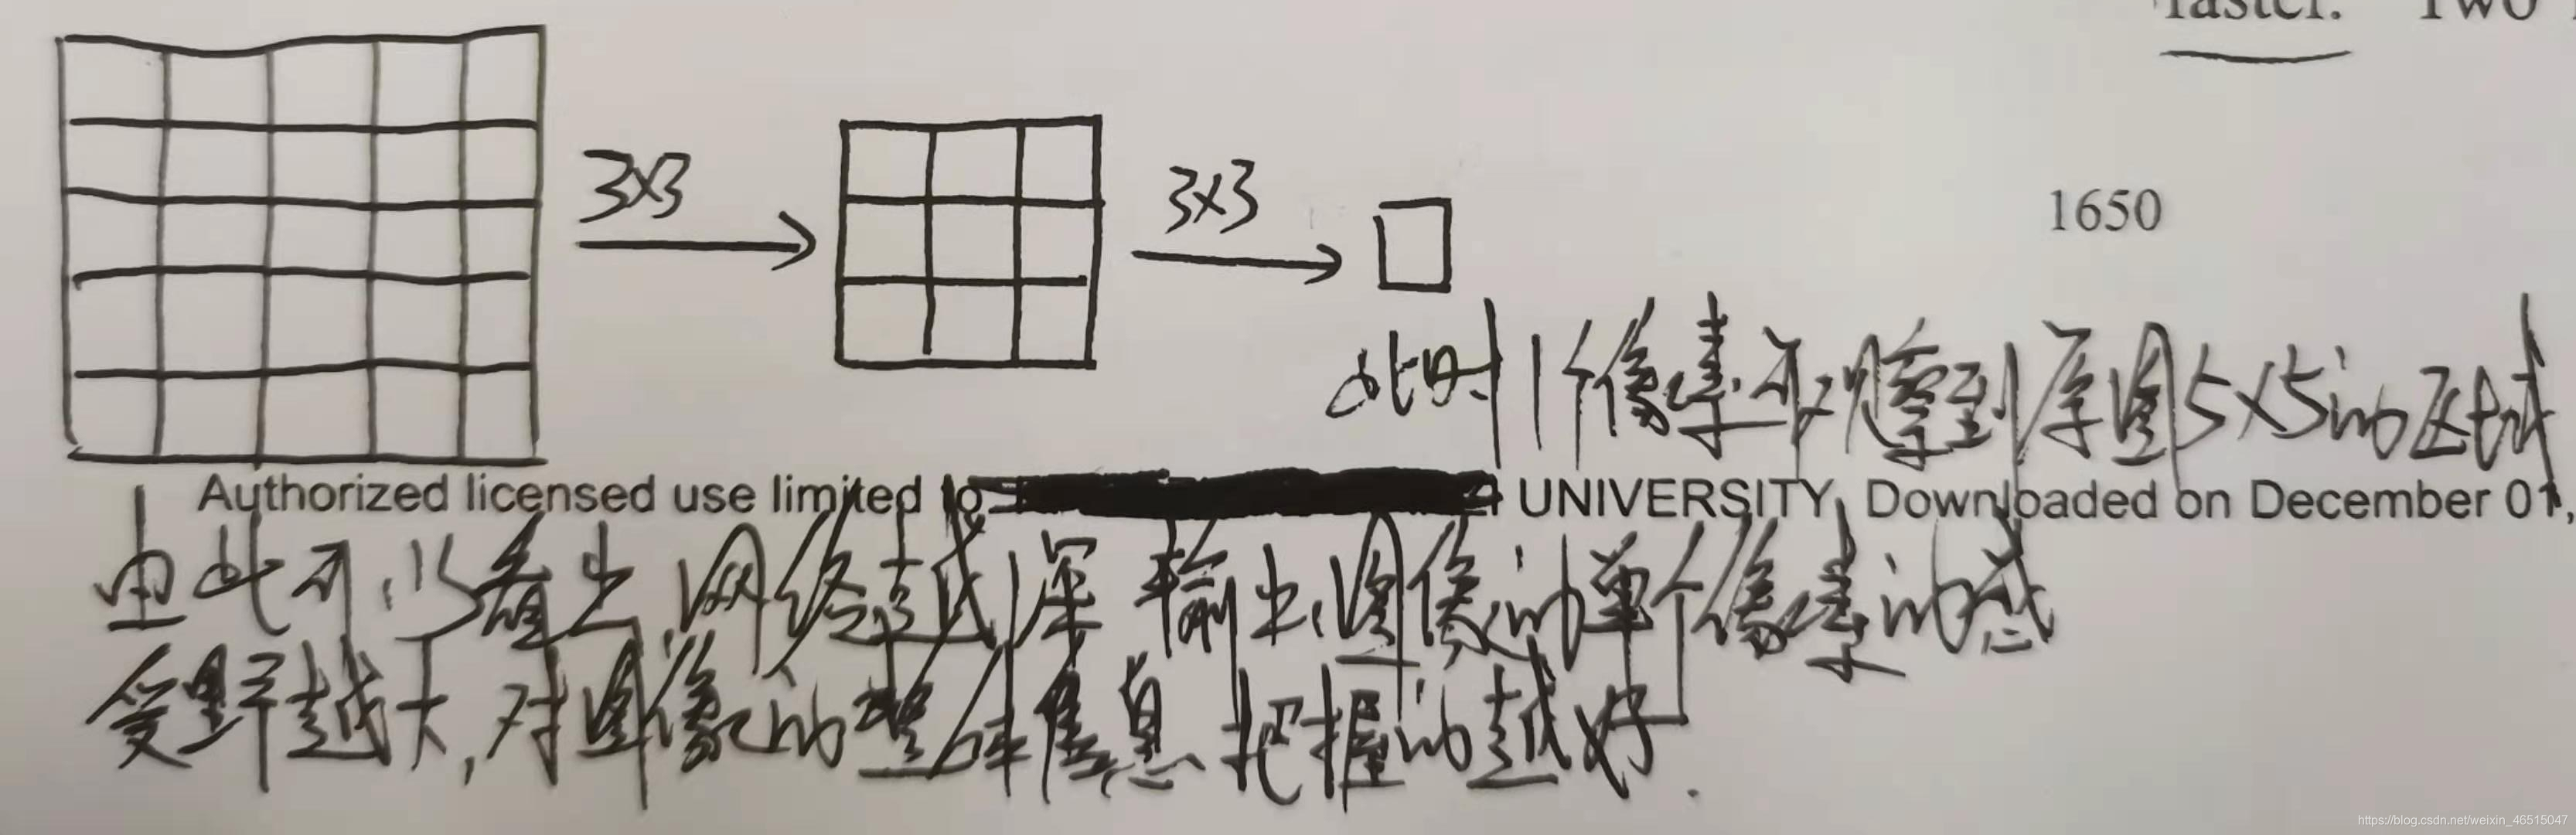 faster. Two
3×3
3×3
1650
此时1个像素可观察到原图5×5的区域
Authorized licensed use limited to UNIVERSITY. Downloaded on December 01,
由此可以看出,网络越深 输出图像的单个像素的感
受野越大,对图像的整体信息把握的越好.
https://blog.csdn.net/weixin_46515047